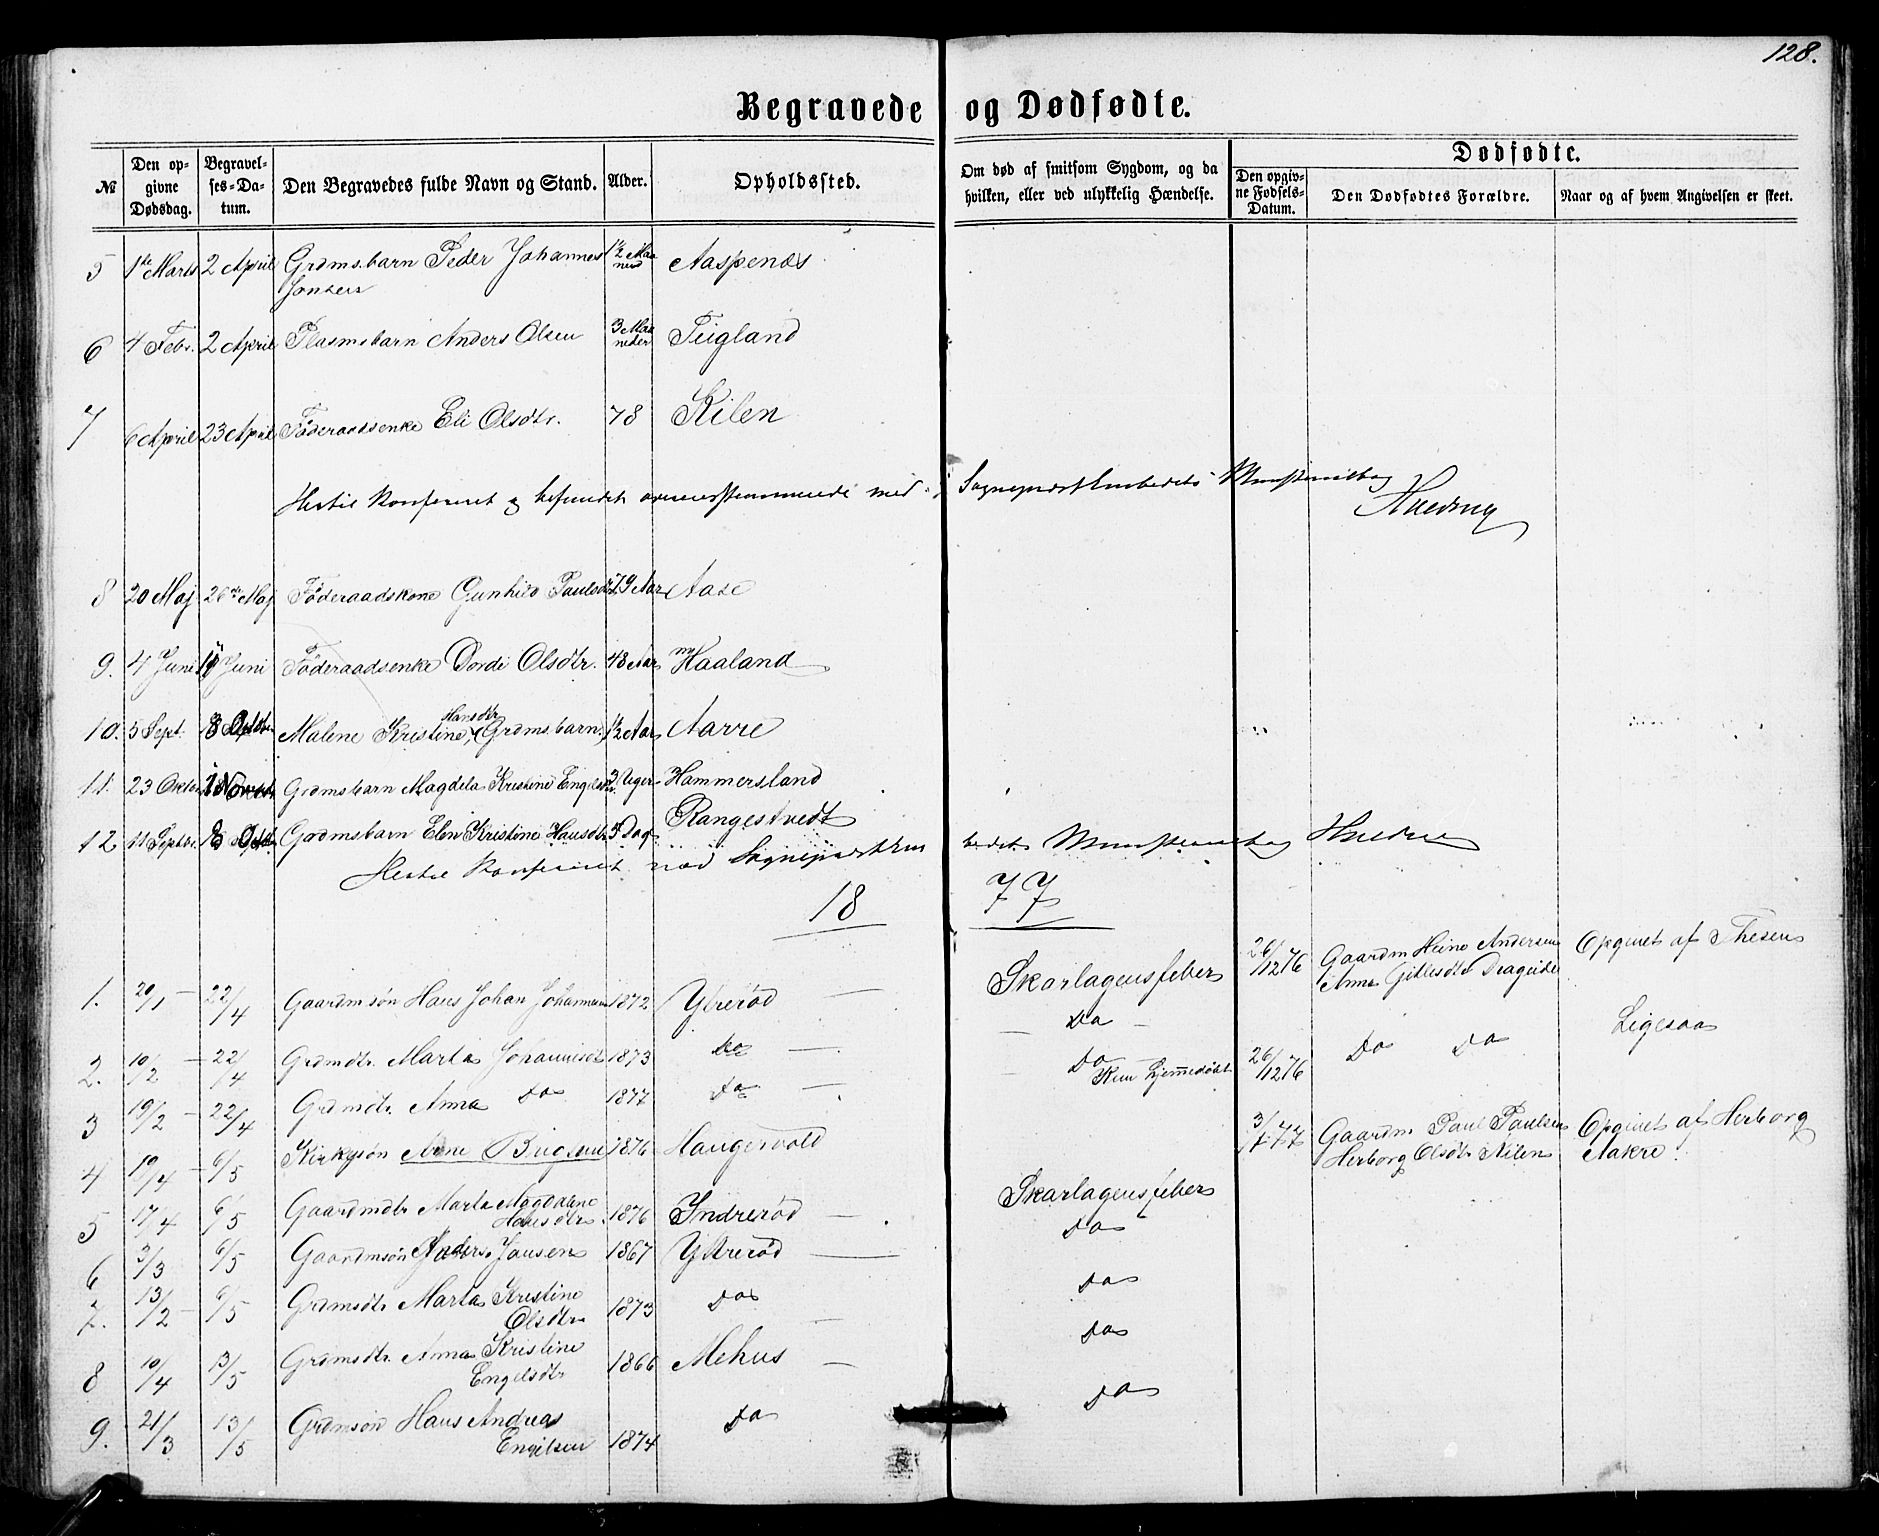 128.
Begravede og Dødfødte.
№
Den opgivne Dødsdag.
Begravelses-Datum.
Den Begravedes fulde Navn og Stand.
Alder.
Opholdssted.
Om død af smitsom Sygdom, og da hvilken, eller ved ulykkelig Hændelse.
Dødfødte.
Den opgivne Fødsels-Datum.
Den Dødfødtes Forældre.
Naar og af hvem Angivelsen er skeet.
5 1ste Marts 2 April Grdms.barn Peder Johannes 1½ Maaned Aaspenæs
Jonsen
6 4 Febr. 2 April Plasmsbarn Anders Olsen 3 Maaneder Teigland
7 6 April 23 April Føderaadsenke Eli Olsdtr. 78 Kilen
Hertil konfereret og befundet overensstemmende med Sognepræstembedets Ministerialbog
8 20 Maj 26 Maj Føderaadskone Gunhild Paulsdtr 79 Aar Aase
9. 4 Juni Juni Føderaadsenke Dordi Olsdtr. 48 Aar Haaland
Hansdtr
10. 5 Sept. Malene Kristine, (Grdms.barn) ½ Aar Aarre
11. 23 Oktbr Grdmsbarn Magdela Kristine Engelsdtr 3 Uger Hammersland
12 11 Septbr. Grdmsbarn Elen Kristine Hansdtr Dag Rangestvedt
Hertil konfereret med Sognepræstembedets Ministerialbog
18 77
26/12 76 Gaardm Heine Andersen Opgivet af Thesen
Anna Drageide
1. 20/1 22/4 Gaardmsøn Hans Johan Johannesen 1872 Ytrerød Skarlagensfeber
2. 10/2 22/4 Grdmdtr. Marta Johannesdt 1873 Do Do
26/12 76 Do Do Ligesaa
3 19/2 22/4 Grdmdtr. Anna Do 1877 Do Do
Kun hjemmedøbt
4 19/4 6/5 Kirkesøn Arne 1876 Haugervold
3/7 77 Gaardm Paul Paulsen Opgivet af Herborg
Herborg Olsdtr Kilen Aakre
5 17/4 6/5 Gaardmdtr Marta Magdalene 1876 Indrerød Skarlagensfeber
Hansdtr
6 3/3 6/5 Gaardmsøn Anders Jansen 1867 Ytrerød Do
7. 13/2 6/5 Grdmsdtr Marta Kristine 1873 Do Do
Olsdtr
8 10/4 13/5 Grdmsdtr. Anna Kristine 1866 Mehus Do
Engelsdtr
9. 21/3 13/5 Grdmsøn Hans Andreas 1874 Do Do
Engelsen